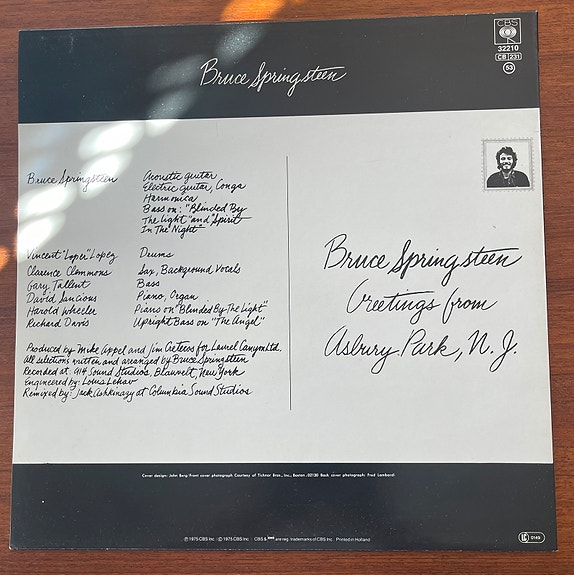 CBS
32210
CB 231
53
Bruce Springsteen
Bruce Springsteen Acoustic guitar
Electric guitar, Conga
Harmonica
Bass on: "Blinded By
The Light" and "Spirit
In The Night"
Vincent "Loper" Lopez Drums
Clarence Clemmons Sax, Background Vocals
Gary Tallent Bass
David Sancious Piano, Organ
Harold Wheeler Piano on "Blinded By The Light"
Richard Davis Upright Bass on "The Angel"
Produced by Mike Appel and Jim Creteros for Laurel Canyon Ltd.
All selections written and arranged by Bruce Springsteen
Recorded at: 914 Sound Studios, Blauvelt, New York
Engineered by: Louis Lahav
Remixed by: Jack Ashkinazy at Columbia Sound Studios
Bruce Springsteen
Greetings from
Asbury Park, N.J.
Cover design: John Berg/Front cover photograph Courtesy of Tichnor Bros., Inc., Boston, 02130 Back cover photograph: Fred Lombardi
℗ 1975 CBS Inc © 1975 CBS Inc CBS & are reg. trademarks of CBS Inc. Printed in Holland
LC 0149